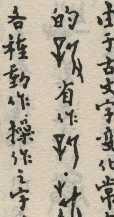 由于古文字變化常
的 有作
各種動作操作之字